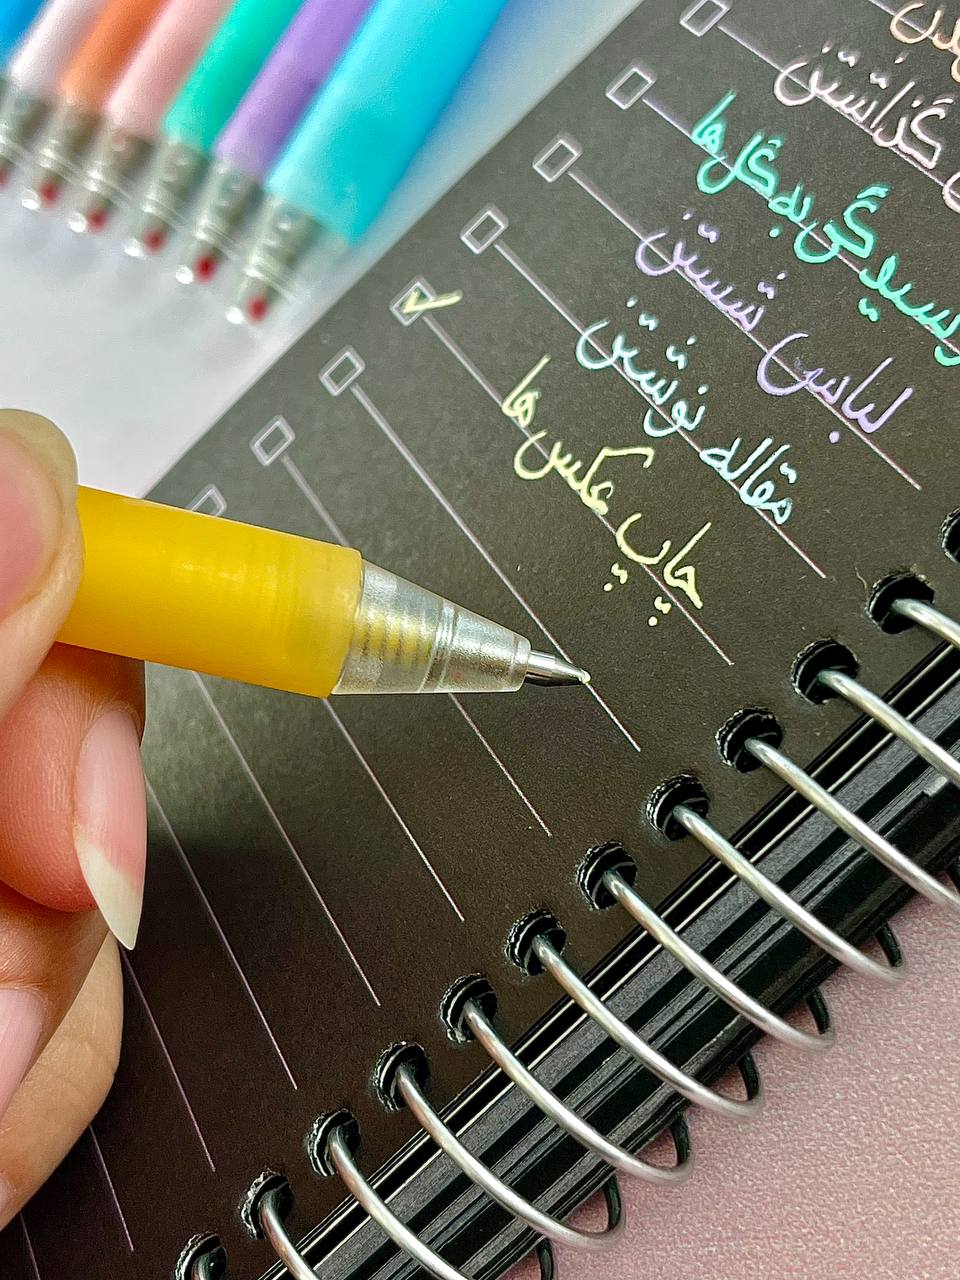 گذاشتن
رسیدگی به گل ها
لباس شستن
مقاله نوشتن
چاپ عکس ها